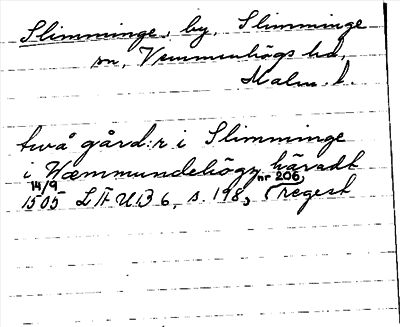 Slimminge, by, Slimminge
sn, Vemmenhögs hd,
Malm. l.
två gård:r i Slimminge
i Wæmmundehögx häradt
14/9 1505 LÄUB 6, s. 198, nr 206, (regest